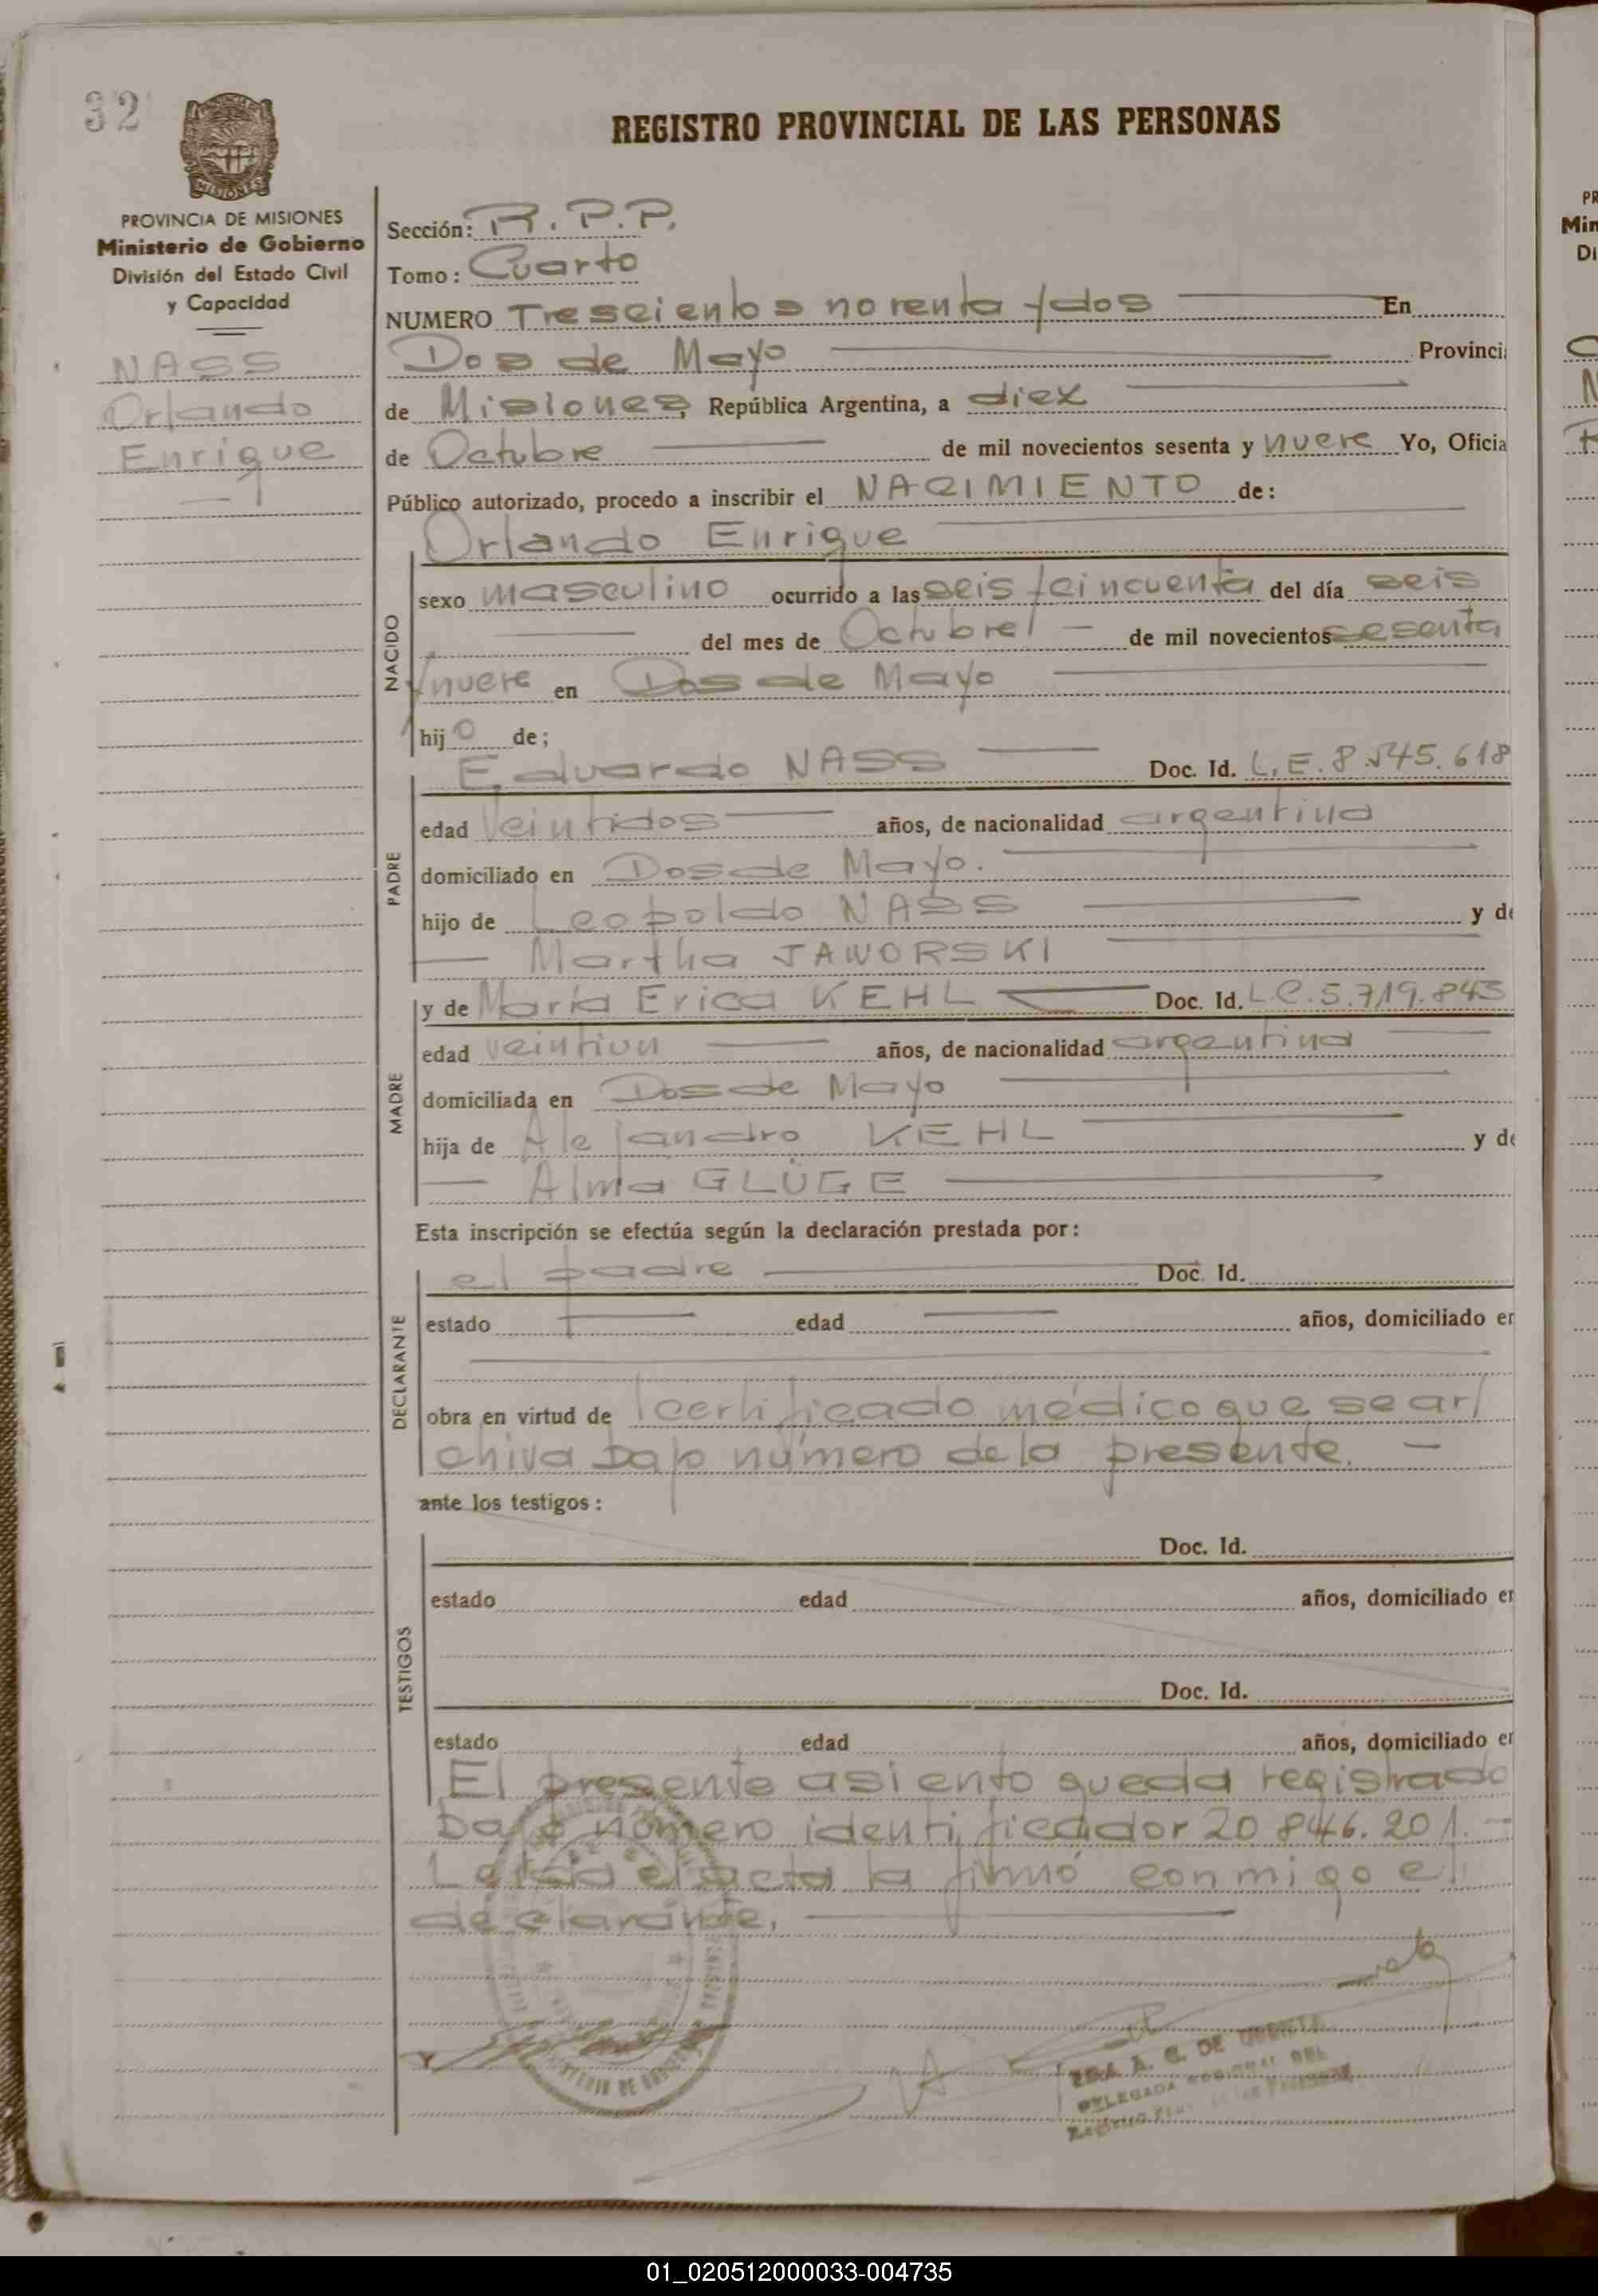 32
REGISTRO PROVINCIAL DE LAS PERSONAS
MISIONES
PROVINCIA DE MISIONES
Ministerio de Gobierno
División del Estado Civil
y Capacidad
NASS
Orlando
Enrique
Sección: R.P.P.
Tomo: Cuarto
NUMERO Trescientos noventa y dos En
Dos de Mayo Provinci
de Misiones, República Argentina, a diez
de Octubre de mil novecientos sesenta y nueve Yo, Oficia
Público autorizado, procedo a inscribir el NACIMIENTO de:
Orlando Enrique
NACIDO
sexo masculino ocurrido a las seis y cincuenta del día seis
del mes de Octubre de mil novecientos sesenta
y nueve en Dos de Mayo
hijo de;
Eduardo NASS Doc. Id. L.E. 8.545.618
PADRE
edad veintidos años, de nacionalidad argentina
domiciliado en Dos de Mayo.
hijo de Leopoldo NASS y de
Martha JAWORSKI
y de María Erica KEHL Doc. Id. L.C. 5.719.843
MADRE
edad veintiun años, de nacionalidad argentina
domiciliada en Dos de Mayo
hija de Alejandro KEHL y de
Alma GLÜGE
Esta inscripción se efectúa según la declaración prestada por:
el padre Doc. Id.
DECLARANTE
estado edad años, domiciliado en
obra en virtud de certificado médico que se ar/
chiva bajo número de la presente.
ante los testigos:
Doc. Id.
TESTIGOS
estado edad años, domiciliado en
Doc. Id.
estado edad años, domiciliado en
El presente asiento queda registrado
bajo número identificador 20.846.201.
Leída el acta la firmó conmigo el
declarante.
A. G. DE
DELEGADA REGIONAL DEL
01_020512000033-004735